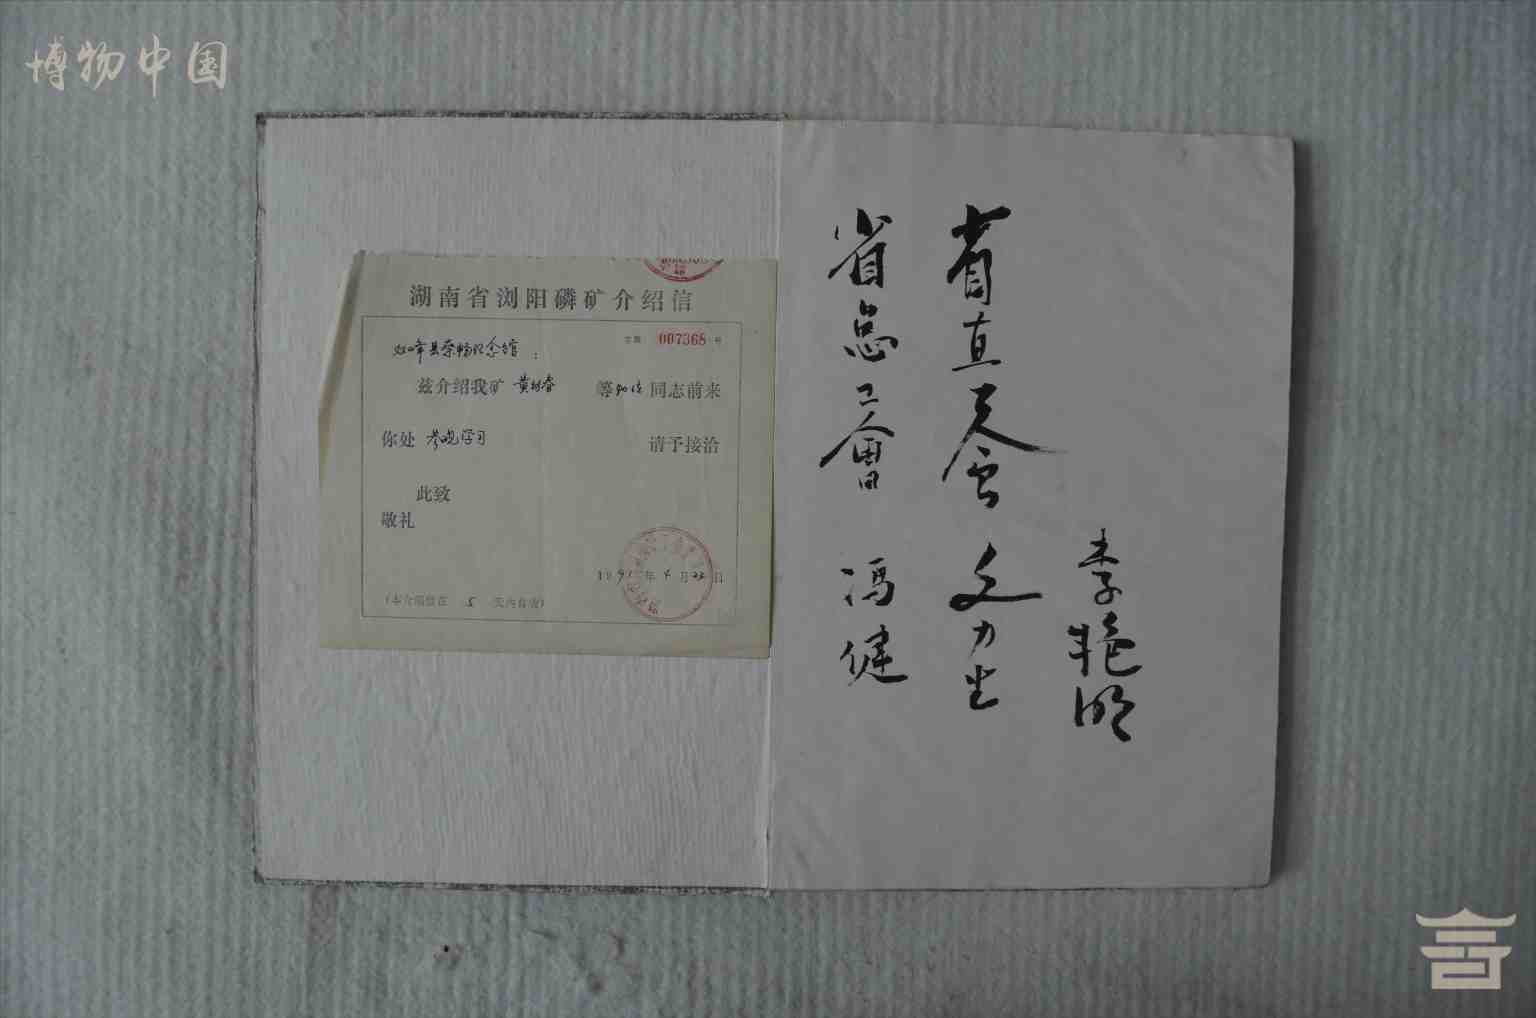 博物中国
湖南省浏阳磷矿介绍信
字第 007368 号
双峰县蔡畅纪念馆：
兹介绍我矿 黄树春 等90位同志前来
你处 参观学习 请予接洽
此致
敬礼
1991年4月22日
（本介绍信在 5 天内有效）
李艳明
省直工会 文力生
省总工会 冯健